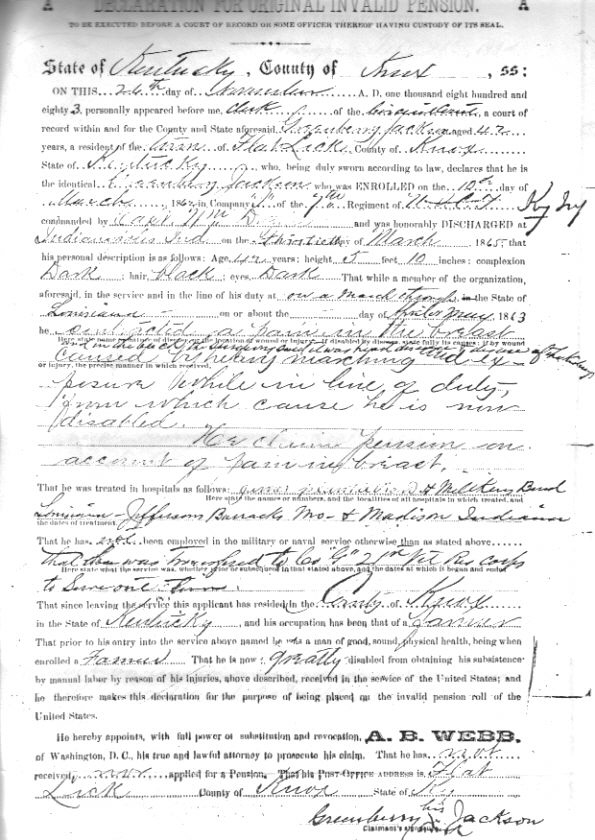 A DECLARATION FOR ORIGINAL INVALID PENSION. A
TO BE EXECUTED BEFORE A COURT OF RECORD OR SOME OFFICER THEREOF HAVING CUSTODY OF ITS SEAL.
State of Kentucky, County of Knox, SS:
ON THIS 26th day of A. D. one thousand eight hundred and
eighty 3, personally appeared before me, Clerk of the Circuit Court, a court of
record within and for the County and State aforesaid, Greenberry Jackson aged 42
years, a resident of the town of Flat Lick County of Knox
State of Kentucky, who, being duly sworn according to law, declares that he is
the identical Greenberry Jackson who was ENROLLED on the 10th day of
March, 186 in Company of the 7th Regiment of Ky Inf
commanded by Capt Wm and was honorably DISCHARGED at
Indianapolis Ind on the Thirtieth day of March 1865: that
his personal description is as follows: Age, 42 years; height, 5 feet 10 inches: complexion
Dark; hair, black; eyes, Dark That while a member of the organization,
aforesaid, in the service and in the line of his duty at on a March through in the State of
Louisiana on or about the day of May 1863
he contracted a pain in the breast
Here state name or nature of disease or the location of wound or injury. If disabled by disease, state fully its causes; if by wound
caused by being marching and ex-
or injury, the precise manner in which received.
posure while in line of duty,
from which cause he is now
disabled.
He claims pension on
account of pain in breast.
That he was treated in hospitals as follows: & Millikens Bend
Here state the names or numbers, and the localities of all hospitals in which treated, and
Louisiana - Jefferson Barracks Mo - & Madison Indiana
the dates of treatment.
That he has not been employed in the military or naval service otherwise than as stated above
that then was transfered to Co "G" Vet Res corps
Here state what the service was, whether prior or subsequent to that stated above, and the dates at which it began and ended
to Serve out time.
That since leaving the service this applicant has resided in the County of Knox
in the State of Kentucky, and his occupation has been that of a Farmer
That prior to his entry into the service above named he was a man of good, sound, physical health, being when
enrolled a Farmer That he is now greatly disabled from obtaining his subsistence
by manual labor by reason of his injuries, above described, received in the service of the United States; and
he therefore makes this declaration for the purpose of being placed on the invalid pension roll of the
United States.
He hereby appoints, with full power of substitution and revocation, A. B. WEBB.
of Washington, D. C., his true and lawful attorney to prosecute his claim. That he has not
received, nor applied for a Pension. That his POST-OFFICE ADDRESS is Flat
Lick County of Knox State of Ky
Greenberry his Jackson
Claimant's signature